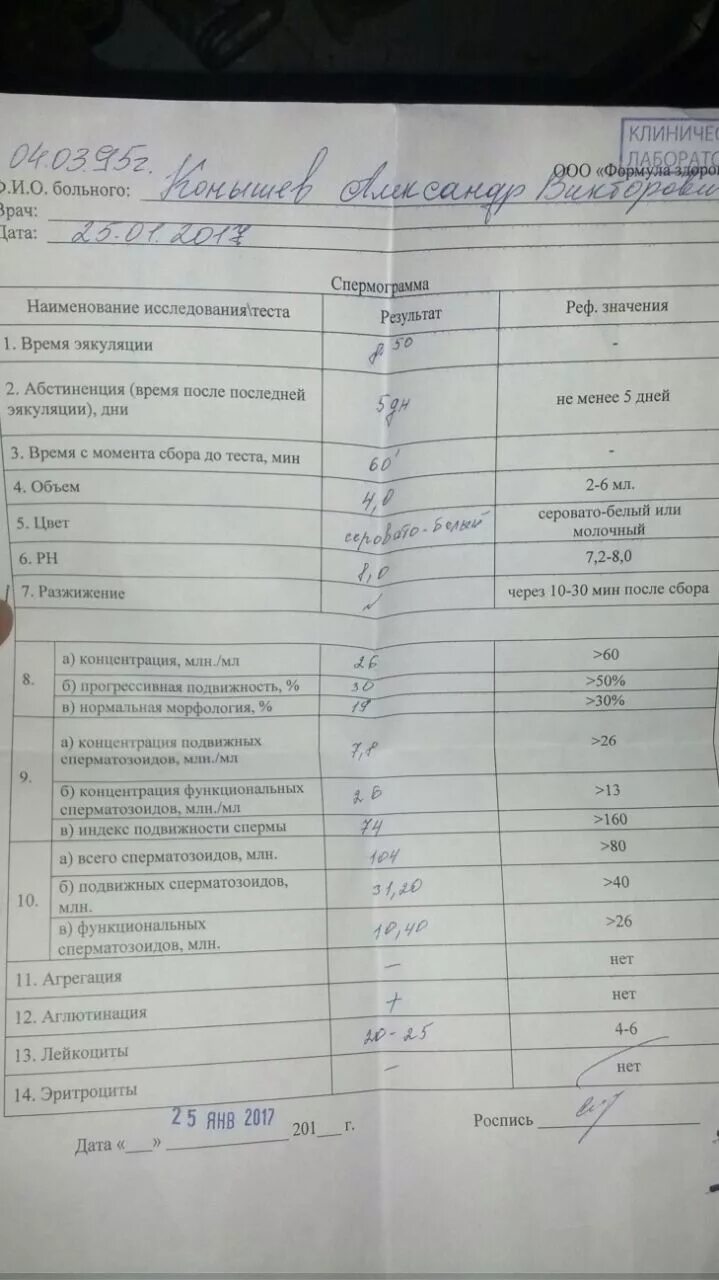 КЛИНИЧЕС
ЛАБОРАТО
04.03.95г.
ООО «Формула здоров
Ф.И.О. больного: Конышев Александр Викторович
Врач:
Дата: 25.01.2017
Спермограмма
Наименование исследования\теста Результат Реф. значения
1. Время эякуляции 8 50 -
2. Абстиненция (время после последней эякуляции), дни 5дн не менее 5 дней
3. Время с момента сбора до теста, мин 60' -
4. Объем 4,0 2-6 мл.
5. Цвет серовато-белый серовато-белый или молочный
6. РН 8,0 7,2-8,0
7. Разжижение через 10-30 мин после сбора
8. а) концентрация, млн./мл 26 >60
б) прогрессивная подвижность, % 30 >50%
в) нормальная морфология, % 19 >30%
9. а) концентрация подвижных сперматозоидов, млн./мл 7,8 >26
б) концентрация функциональных сперматозоидов, млн./мл 26 >13
в) индекс подвижности спермы 74 >160
10. а) всего сперматозоидов, млн. 104 >80
б) подвижных сперматозоидов, млн. 31,20 >40
в) функциональных сперматозоидов, млн. 10,40 >26
11. Агрегация – нет
12. Аглютинация + нет
13. Лейкоциты 20-25 4-6
14. Эритроциты – нет
25 ЯНВ 2017
Дата «___» ____________ 201___ г. Роспись